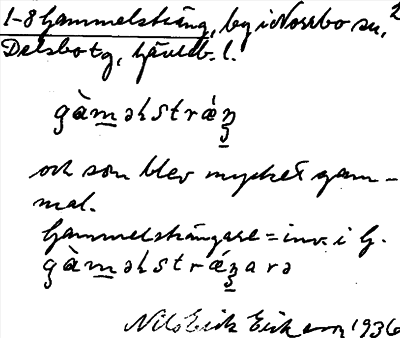 1-8 Gammelsträng, by i Norrbo sn, 2
Delsbo tg, Gävleb. l.
gàm̲əlstrǽŋ̲
och som blev mycket gam-
mal.
Gammelsträngare = inv. i G.
gàm̲əlstrǽŋ̲arə
Nils Erik Erikson 1936